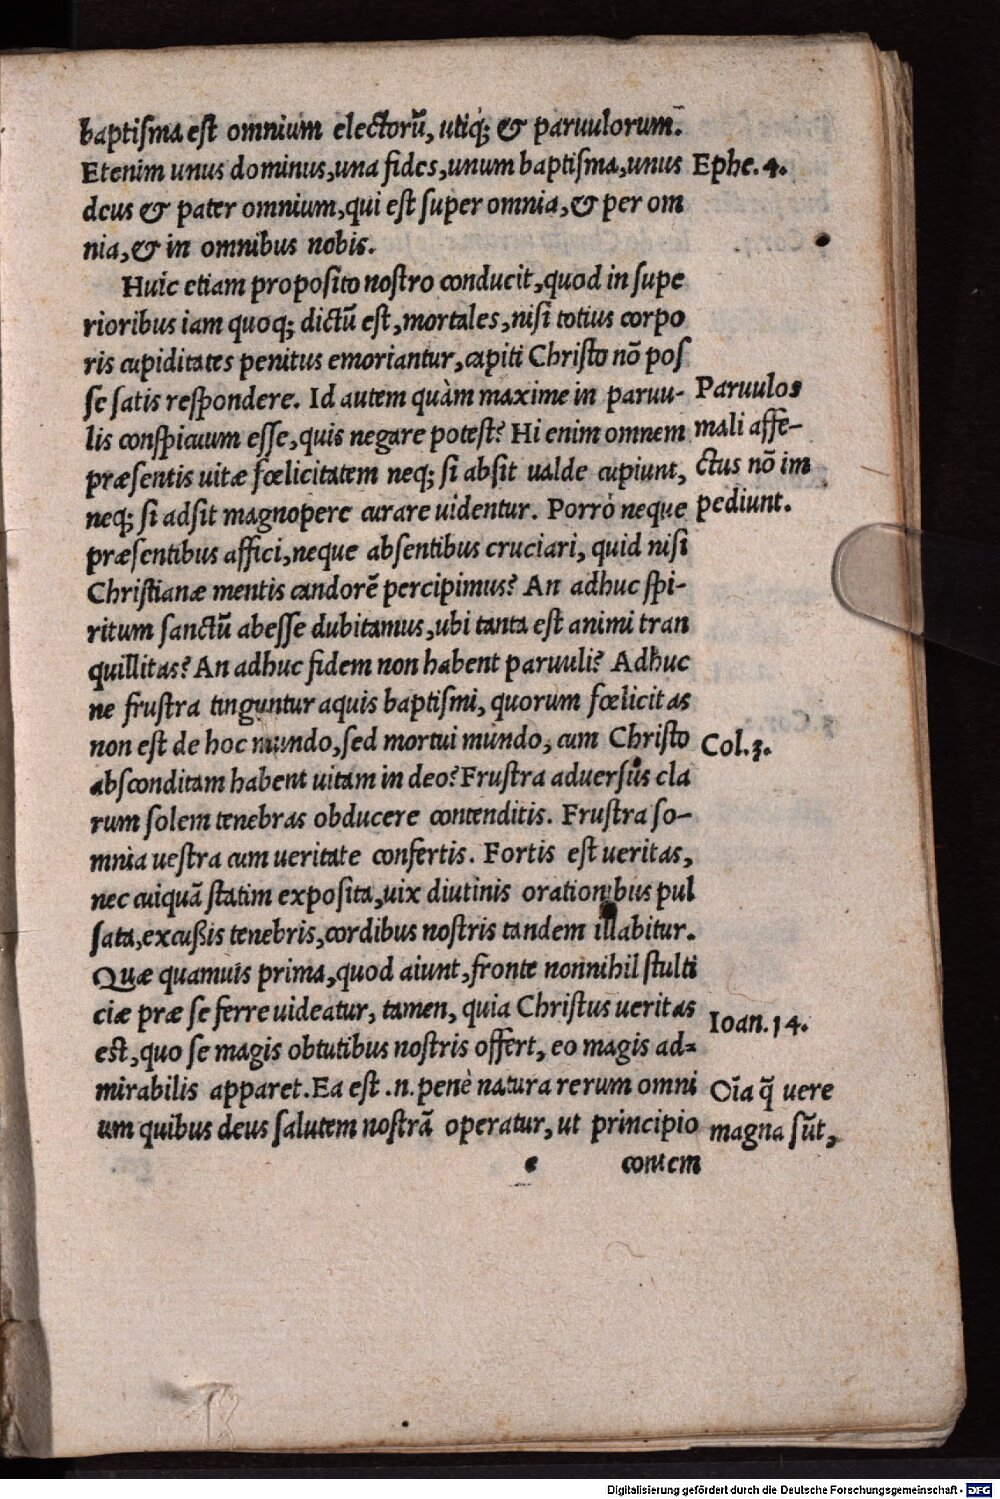 baptiſma eſt omnium electorũ, utiq; & paruulorum.
Etenim unus dominus, una fides, unum baptiſma, unus
deus & pater omnium, qui eſt ſuper omnia, & per om
nia, & in omnibus nobis.
Huic etiam propoſito noſtro conducit, quod in ſupe
rioribus iam quoq; dictũ eſt, mortales, niſi totius corpo
ris cupiditates penitus emoriantur, capiti Chriſto nõ poſ
ſe ſatis reſpondere. Id autem quàm maxime in paruu-
lis conſpicuum eſſe, quis negare poteſt? Hi enim omnem
præſentis uitæ fœlicitatem neq; ſi abſit ualde cupiunt,
neq; ſi adſit magnopere curare uidentur. Porrò neque
præſentibus affici, neque abſentibus cruciari, quid niſi
Chriſtianæ mentis candorẽ percipimus? An adhuc ſpi-
ritum ſanctũ abeſſe dubitamus, ubi tanta eſt animi tran
quillitas? An adhuc fidem non habent paruuli? Adhuc
ne fruſtra tinguntur aquis baptiſmi, quorum fœlicitas
non eſt de hoc mundo, ſed mortui mundo, cum Chriſto
abſconditam habent uitam in deo? Fruſtra aduerſus cla
rum ſolem tenebras obducere contenditis. Fruſtra ſo-
mnia ueſtra cum ueritate confertis. Fortis eſt ueritas,
nec cuiquã ſtatim expoſita, uix diutinis orationibus pul
ſata, excuſsis tenebris, cordibus noſtris tandem illabitur.
Quæ quamuis prima, quod aiunt, fronte nonnihil ſtulti
ciæ præ ſe ferre uideatur, tamen, quia Chriſtus ueritas
eſt, quo ſe magis obtutibus noſtris offert, eo magis ad-
mirabilis apparet. Ea eſt .n. penè natura rerum omni
um quibus deus ſalutem noſtrã operatur, ut principio
e contem
Ephe. 4.
Paruulos
mali affe-
ctus nõ im
pediunt.
Col. 3.
Ioan. 14.
Oĩa q̃ uere
magna ſũt,
Digitalisierung gefördert durch die Deutsche Forschungsgemeinschaft - DFG